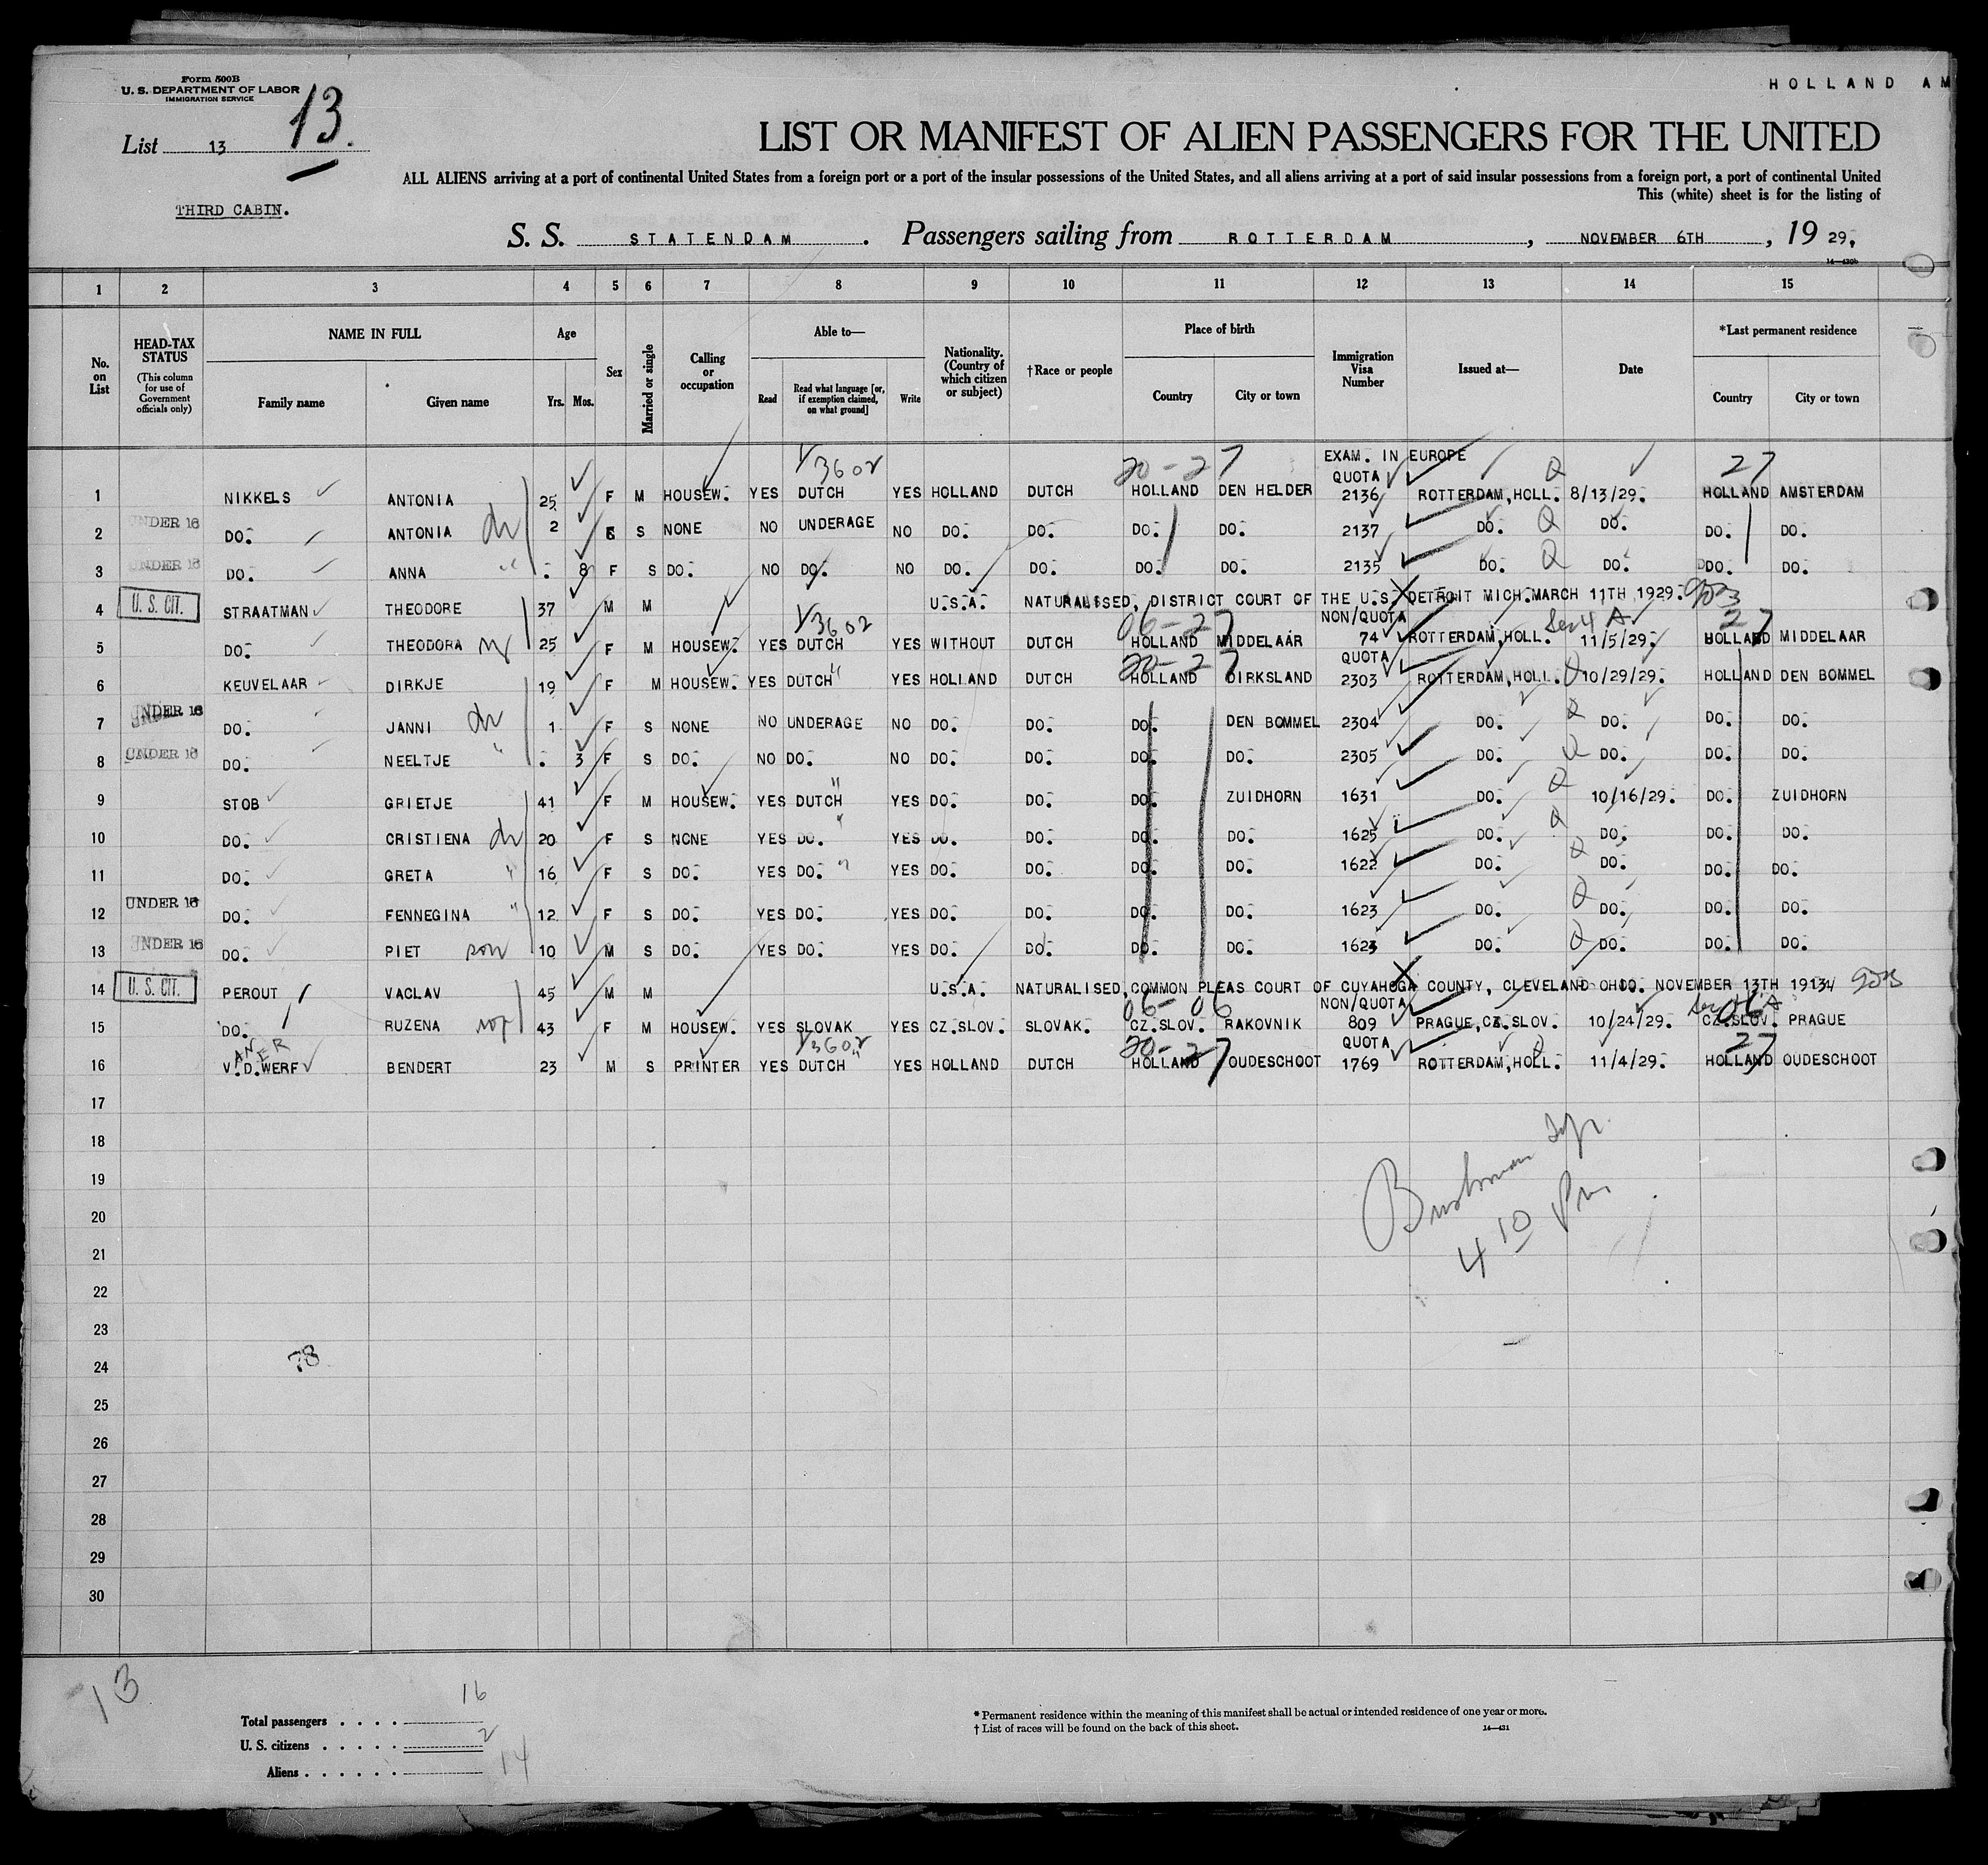 Form 500B
U. S. DEPARTMENT OF LABOR
IMMIGRATION SERVICE
HOLLAND AM
List 13 13.
LIST OR MANIFEST OF ALIEN PASSENGERS FOR THE UNITED
ALL ALIENS arriving at a port of continental United States from a foreign port or a port of the insular possessions of the United States, and all aliens arriving at a port of said insular possessions from a foreign port, a port of continental United
This (white) sheet is for the listing of
THIRD CABIN.
S. S. STATENDAM. Passengers sailing from ROTTERDAM, NOVEMBER 6TH, 19 29.
1 2 3 4 5 6 7 8 9 10 11 12 13 14 15
No. on List
HEAD-TAX STATUS (This column for use of Government officials only)
NAME IN FULL Family name Given name
Age Yrs. Mos.
Sex
Married or single
Calling or occupation
Able to— Read Read what language [or, if exemption claimed, on what ground] Write
Nationality. (Country of which citizen or subject)
†Race or people
Place of birth Country City or town
Immigration Visa Number
Issued at—
Date
*Last permanent residence Country City or town
EXAM. IN EUROPE
3602 20-27 QUOTA 27
1 NIKKELS ANTONIA 25 F M HOUSEW. YES DUTCH YES HOLLAND DUTCH HOLLAND DEN HELDER 2136 ROTTERDAM, HOLL. 8/13/29. HOLLAND AMSTERDAM
2 UNDER 16 DO. ANTONIA 2 S NONE NO UNDERAGE NO DO. DO. DO. DO. 2137 DO. DO. DO. DO.
3 UNDER 16 DO. ANNA . 8 F S DO. NO DO. NO DO. DO. DO. DO. 2135 DO. DO. DO. DO.
4 U. S. CIT. STRAATMAN THEODORE 37 M M U.S.A. NATURALISED, DISTRICT COURT OF THE U.S. DETROIT MICH. MARCH 11TH 1929.
3602 06-27 NON/QUOTA Sec 4 A 27
5 DO. THEODORA 25 F M HOUSEW. YES DUTCH YES WITHOUT DUTCH HOLLAND MIDDELAAR 74 ROTTERDAM, HOLL. 11/5/29. HOLLAND MIDDELAAR
20-27 QUOTA
6 KEUVELAAR DIRKJE 19 F M HOUSEW. YES DUTCH YES HOLLAND DUTCH HOLLAND DIRKSLAND 2303 ROTTERDAM, HOLL. 10/29/29. HOLLAND DEN BOMMEL
7 UNDER 16 DO. JANNI 1 F S NONE NO UNDERAGE NO DO. DO. DO. DEN BOMMEL 2304 DO. DO. DO. DO.
8 UNDER 16 DO. NEELTJE . 3 F S DO. NO DO. NO DO. DO. DO. DO. 2305 DO. DO. DO. DO.
9 STOB GRIETJE 41 F M HOUSEW. YES DUTCH YES DO. DO. DO. ZUIDHORN 1631 DO. 10/16/29. DO. ZUIDHORN
10 DO. CRISTIENA 20 F S NONE YES DO. YES DO. DO. DO. DO. 1625 DO. DO. DO. DO.
11 DO. GRETA " 16 F S DO. YES DO. YES DO. DO. DO. DO. 1622 DO. DO. DO. DO.
12 UNDER 16 DO. FENNEGINA " 12 F S DO. YES DO. YES DO. DO. DO. DO. 1623 DO. DO. DO. DO.
13 UNDER 16 DO. PIET son 10 M S DO. YES DO. YES DO. DO. DO. DO. 1623 DO. DO. DO. DO.
14 U. S. CIT. PEROUT VACLAV 45 M M U.S.A. NATURALISED, COMMON PLEAS COURT OF CUYAHOGA COUNTY, CLEVELAND OHIO. NOVEMBER 13TH
06-06 NON/QUOTA 06
15 DO. RUZENA 43 F M HOUSEW. YES SLOVAK YES CZ.SLOV. SLOVAK. CZ.SLOV. RAKOVNIK 809 PRAGUE, CZ.SLOV. 10/24/29. CZ.SLOV. PRAGUE
3602 20-27 QUOTA 27
16 V.D.WERF BENDERT 23 M S PRINTER YES DUTCH YES HOLLAND DUTCH HOLLAND OUDESCHOOT 1769 ROTTERDAM, HOLL. 11/4/29. HOLLAND OUDESCHOOT
17
18
19
20
21
4 10 Pm
22
23
24 78
25
26
27
28
29
30
13
Total passengers . . . . 16
U. S. citizens . . . . . 2
Aliens . . . . . . 14
* Permanent residence within the meaning of this manifest shall be actual or intended residence of one year or more.
† List of races will be found on the back of this sheet. 14—431